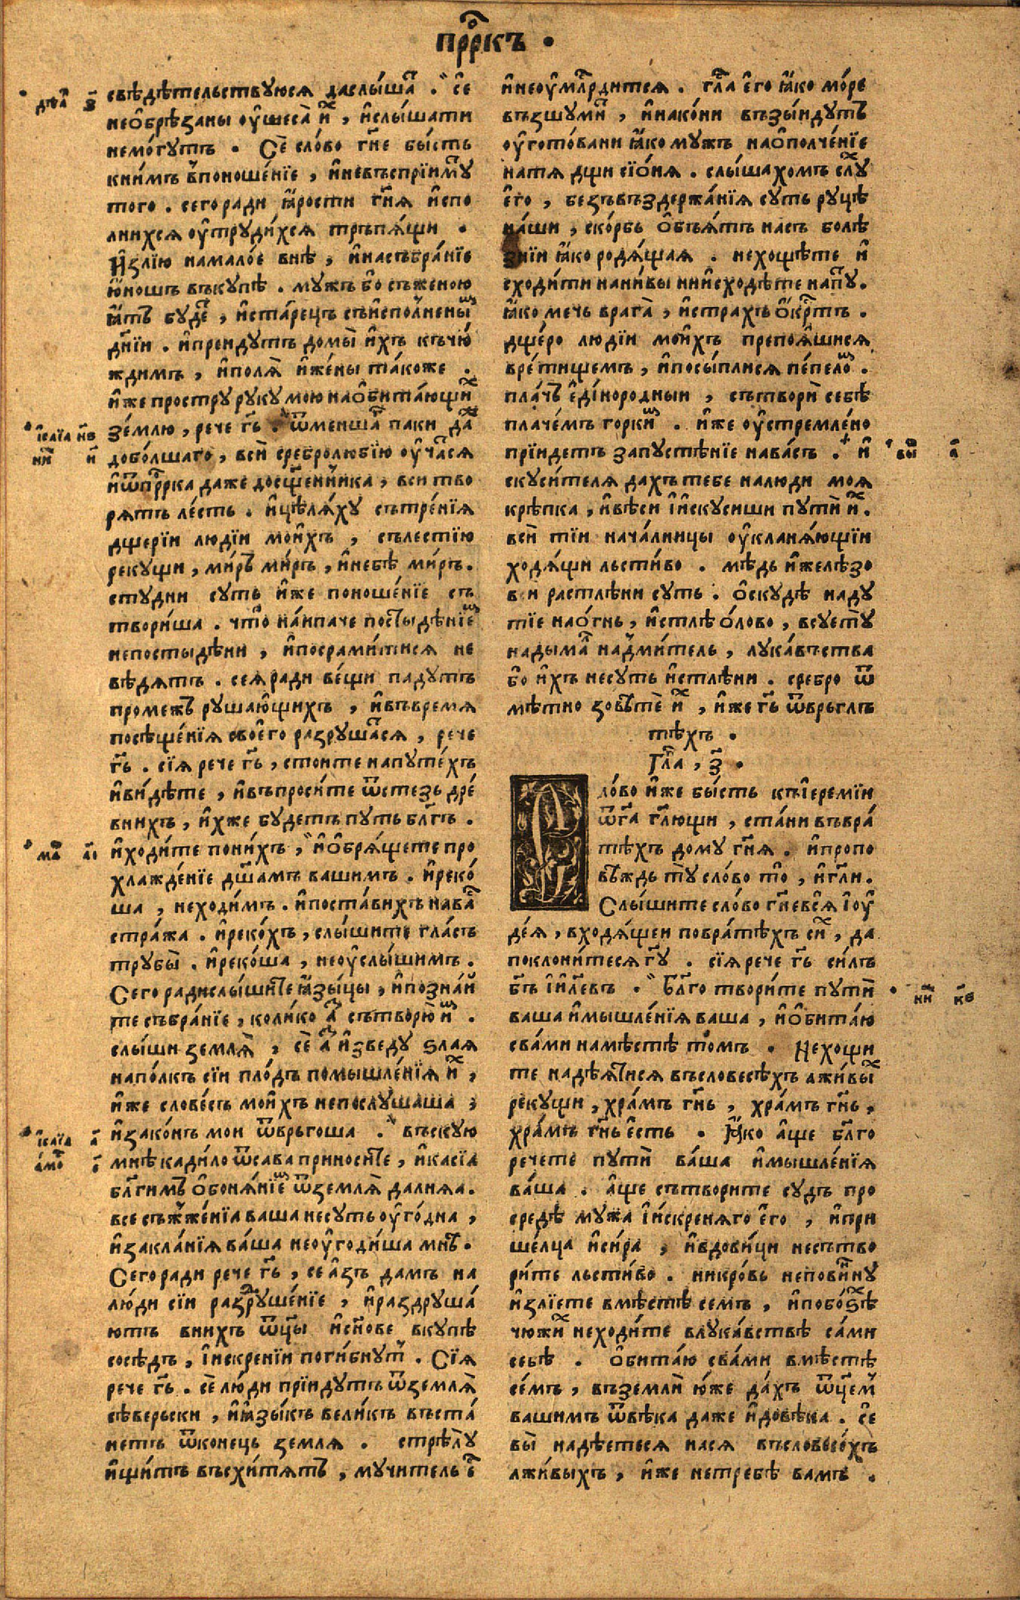 прⷪ҇ркъ .
свѣдѣтельствуюся даслы́шаⷮ . се҆
необрѣзаны оу҆шеса̀ и҆ⷯ , и҆слы́шати
немо́гутъ . Сѐ сло́во гн҃е бы́сть
кни́мъ в҆поноше́нїе , и҆невъспрїи́мꙋ
того . сего ради ꙗ҆рости гн҃ѧ и҆спо
лнихсѧ оу҆трꙋди́хсѧ тръпѧ́щи .
И҆злїю намало́е внѣ̀ , и҆насъбра́нїе
ю҆ношъ въкꙋпѣ . мꙋжъ бо съженою
ꙗ҆тъ бꙋдеⷮ , и҆ста́рець съисполнены́ⷨ
дн҃їи . и҆прендꙋтъ домы̀ и҆́хъ къчю́
ждимъ , и҆полѧ̀ и҆жены та́коже .
и҆́же прострꙋ рꙋкꙋ мою наобита́ющиⷯ
зе́млю , рече гь҃ . ѿменшаⷢ паки даⷤ
добо́лшаго , вси̑ сребролюбїю оу҆ча́сѧ
и҆ѿпрⷪ҇рка даже досщ҃е́нника , вси тво
рѧ́тъ ле́сть . и҆цѣлѧ́хꙋ сътре́нїѧ
дщерїи людїи мои́хъ , сълестїю
рекꙋщи , ми́ръ ми́ръ , и҆небѣ̀ ми́ръ .
стꙋдни сꙋть и҆́же поноше́нїе съ
твори́ша . что̀ на́ипаче постыдѣ́нїеⷨ
непостыдѣни , и҆посрами́тисѧ не
вѣ́дѧтъ . сеѧ҆ради ве́щи падꙋтъ
промежъ рꙋша́ющихъ , и҆въвремѧ
посѣще́нїѧ своего̀ разрꙋшаⷮсѧ , рече
гь҃ . сїѧ рече гь҃ , стоите напꙋте́хъ
и҆ви́дѣте , и҆въпроси́те ѿстезь дре́
внихъ , и҆́хже бꙋдетъ пꙋть бл҃гъ .
и҆ходи́те пони́хъ , и҆обрѧ́щете про
хлажде́нїе дш҃амъ вашимъ . и҆реко́
ша , неходи́мъ . и҆поста́вихъ наваⷭ
стра́жа . и҆реко́хъ , слы́шите гла́съ
трꙋбы̀ . и҆реко́ша , неоу҆слы́шимъ .
Сего ради слы́шите ꙗ҆зы́цы , и҆позна́й
те събра́нїе , коли́ко аⷥ сътворю̀ и҆ⷨ .
слы́ши землѧ̀ , сѐ аⷥ и҆зведꙋ ѕлаѧ
напо́лкъ сїи пло́дъ помышле́нїѧ и҆ⷯ ,
и҆́же слове́съ мои́хъ непослꙋшаша ,
и҆зако́нъ мои ѿврьгоша . въскꙋю
мнѣ̀ кади́ло ѿсава прино́сите , и҆каⷭїа
бл҃гимъ обонѧ́нїеⷨ ѿземлѧ̀ далнѧа .
все съжже́нїа ваша несꙋть оу҆го́дна ,
и҆закла́нїѧ ва́ша неоу҆годи́ша мнѣ̀ .
Сего ради рече гь҃ , се а҆́зъ дамъ на
лю́ди сїи раздрꙋше́нїе , и҆раздрꙋша́
ютъ внихъ ѿц҃ы и҆сн҃ове вкꙋпѣ
сосѣдъ , і҆искренїи поги́бнꙋтъ . Сїѧ
рече гь҃ . сѐ лю́ди прїидꙋтъ ѿземлѧ̀
сѣверьски , и҆ꙗ҆зы́къ великъ въста́
нетъ ѿконець земля . стрѣлꙋ
и҆щитъ въсхи́тѧтъ , мꙋчитель еⷭ
и҆неоу҆млⷭ҇рдитсѧ . глⷭ҇а е҆го̀ ꙗ҆ко мо́ре
възшꙋми́ⷮ , и҆нако́ни възы́идꙋтъ
оу҆гото́вани ꙗ҆ко мꙋжъ наополче́нїе
натѧ дщи сїо́нѧ . слы́шахомъ слꙋⷯ
е҆го̀ , безъвъздержа́нїѧ сꙋть рꙋцѣ
на́ши , ско́рбь обыѧ́тъ насъ болѣ
знїи ꙗ҆ко родѧ́щаѧ . нехощѣте и
сходи́ти нани́вы нинсходѣ́те напꙋⷮ .
ꙗ҆ко мечь врага̀ , и҆страхъ окрⷭ҇тъ .
дще́ро людїи мои́хъ препоѧ́шисѧ
вре́тищемъ , и҆посы́плисѧ пе́пелоⷨ .
пла́чъ е҆дїноро́дныи , сътвори̑ себѣ̀
плаче́мъ горкиⷨ . и҆́же оу҆стремле́но
прїидетъ запꙋстѣ́нїе нава́съ . и҆
скꙋси́телѧ дахъ тебе налюди моѧ
крѣпка , и҆вѣси і҆искꙋсиши пꙋти̑ и҆ⷯ .
вси̑ тїи нача́лницы оу҆кланѧ́ющїи
ходѧ́щи льсти́во . мѣдь и҆желѣ́зо
вси растлѣ́ни сꙋть . оскꙋдѣ надꙋ
тїе нао́гнь , и҆стлѣ̀ о́лово , всꙋетꙋ
надымаⷧ надми́тель , лꙋка́въства
бо и҆́хъ несꙋть и҆стлѣ́ни . сребро ѿ
мѣ́тно зовѣтѐ и҆ⷯ , и҆́же гь҃ ѿврьглъ
тѣ́хъ .
Гл҃а , з҃ .
Сло́во и҆́же бы́сть къіереміи
ѿга҃ гл҃ющи , ста́ни въвра
тѣхъ домꙋ гн҃ѧ . и҆пропо
вѣждь тꙋ сло́во то̑ , и҆гл҃и .
Слы́шите сло́во гн҃е всѧ̀ і҆оу҆
де́ѧ , входѧ́щеи повра́тѣхъ сиⷯ , да
поклони́тесѧ гꙋ҃ . сїѧ рече гь҃ силъ
бг҃ъ і҆и҃левъ . бл҃го твори́те пꙋти̑
ваша и҆мышле́нїѧ ваша , и҆обита́ю
сва́ми намѣ́стѣ то́мъ . Нехощи
те надѣѧ́тисѧ въсловесѣ́хъ лжи́выⷯ
рекꙋщи , хра́мъ гн҃ь , хра́мъ гн҃ь ,
хра́мъ гн҃ь е҆сть . Ꙗ҆ко а҆́ще бл҃го
речете пꙋти̑ ва́ша и҆мышле́нїѧ
ва́ша . а҆́ще сътворите сꙋдъ про
средѣ̀ мꙋжа і҆́искренѧго е҆го̀ , и҆при
ше́лца и҆си́ра , и҆вдови́ци несътво
ри́те льсти́во . никро́вь непови́ннꙋ
и҆злїете вмѣ́стѣ семъ , и҆побо́ѕѣ
чюжиⷯ неходи́те влꙋка́вствѣ са́ми
себѣ . обита́ю сва́ми вмѣ́стѣ
се́мъ , въземли̑ ю҆́же да́хъ ѿце҃мⷨ
вашимъ ѿвѣка даже и҆довѣ́ка . се҆
вы̀ надѣетесѧ насѧ въсловесѣ́хъ
лжи́выхъ , и҆́же нетребѣ вамъ .
дѣаⷩ з҃
і҆саїа нв҃
ни҃ и҃
маⷮ аі҃
і҆саїа а҃
амоⷭ е҃
ни҃ кв҃